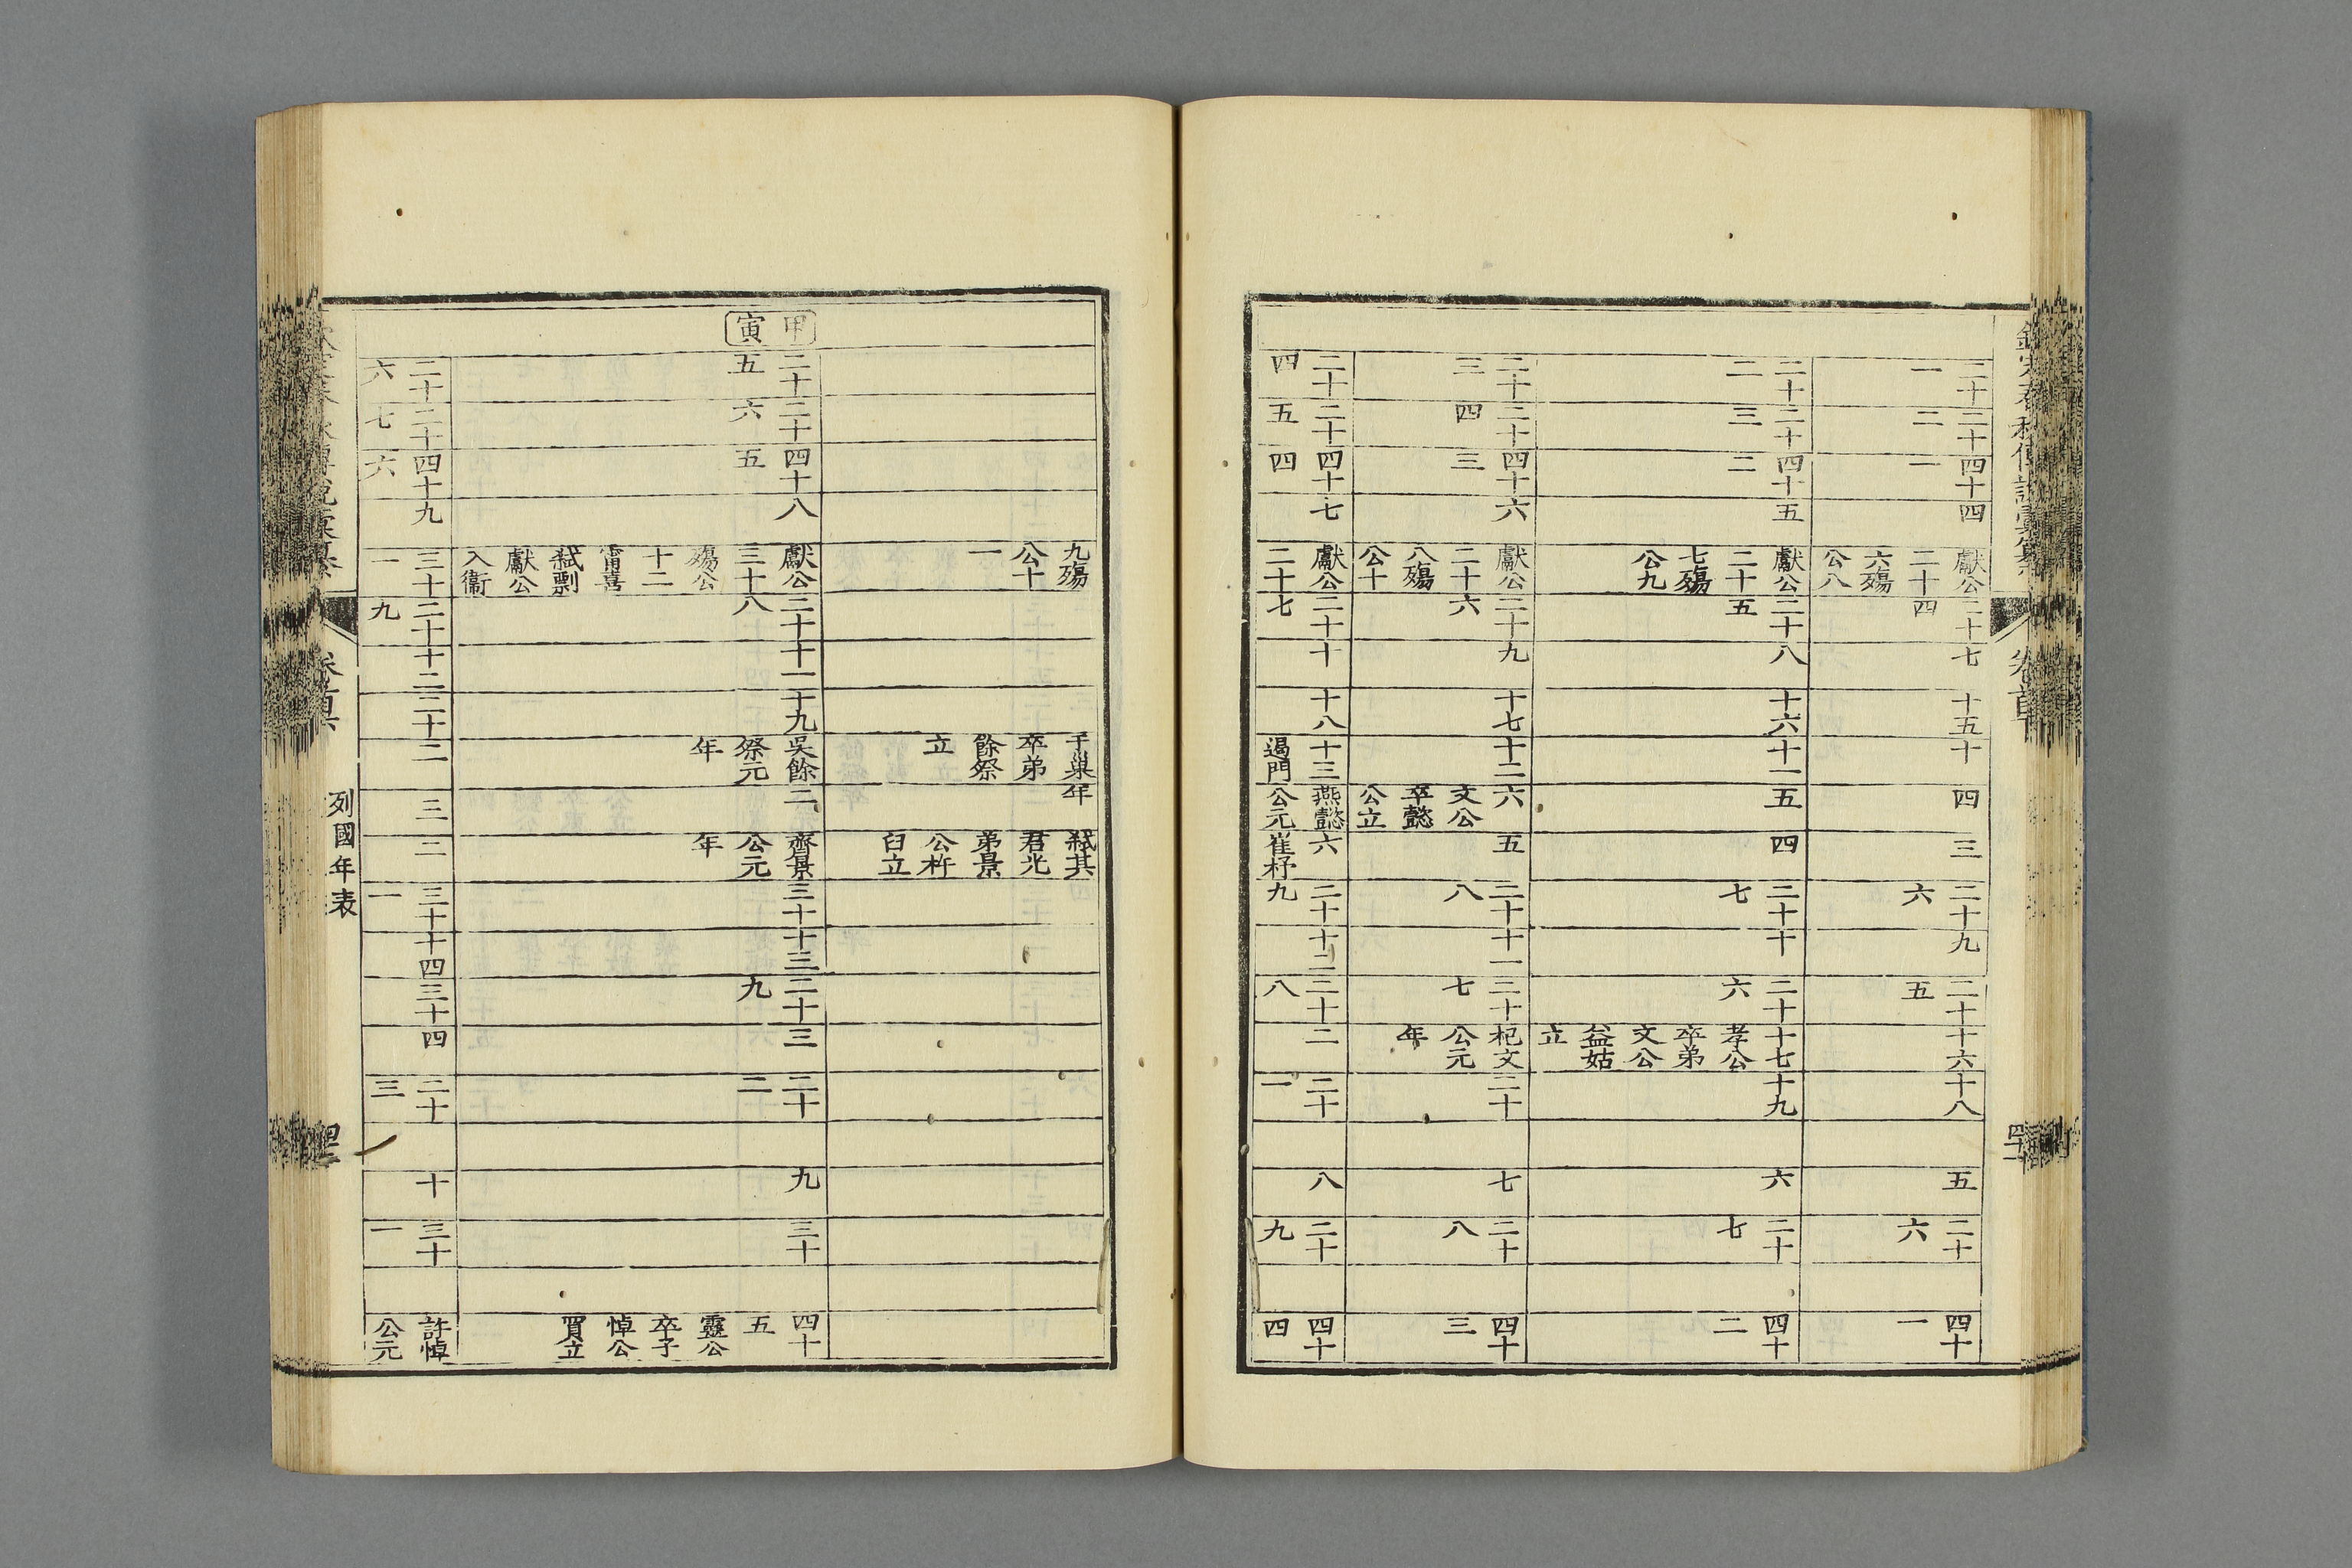 欽定春秋傳說彙纂 卷首下
二十 二十 四十四 獻公 二十七 十五 十 四 三 二十九 二十 十六 十八 五 二十 四十
一 二 一 二十四 六 五 六 一
六殤
公八
二十 二十 四十五 獻公 二十八 十六 十一 五 四 二十 十 二十 十七 十九 六 二十 四十
二 三 二 二十 五 七 六 孝公 七 二
七殤 卒弟
公九 文公
益姑
立
二十 二十 四十六 獻公 二十九 十七 十二 六 五 二十 十一 二十 杞文 二十 七 二十 四十
三 四 三 二十 六 文公 八 七 公元 八 三
八殤 卒懿 年
公十 公立
二十 二十 四十七 獻公 二十 十 十八 十三 燕懿 六 二十 十二 二十 二 二十 八 二十 四十
四 五 四 二十 七 遏門 公元 崔杼 九 八 一 九 四
九殤 于巢 年 弒其
公十 卒弟 君光
一 餘祭 弟景
立 公杵
臼立
甲 二十 二十 四十八 獻公 二十 十一 十九 吳餘 二 齊景 三十 十三 二十 三 二十 九 三十 四十
寅 五 六 五 三十 八 祭元 公元 九 二 五
殤公 年 年 靈公
十二 卒子
甯喜 悼公
弒剽 買立
獻公
入衞
二十 二十 四十九 三十 二十 十二 二十 二 三 二 三十 十四 三十 四 二十 十 三十 許悼
六 七 六 一 九 一 三 一 公元
列國年表